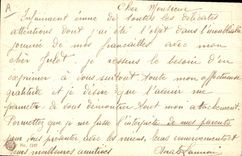 A
Cher Monsieur
Infiniment émue de toutes les délicates
attentions dont j'ai été l'objet dans l'inoubliable
journée de mes fiançailles avec mon
cher Jules, je ressens le besoin d'en
exprimer à vous surtout toute mon affectueuse
gratitude et je désire que l'avenir me
permette de vous démontrer tout mon attachement.
Permettez que je me fasse l'interprète de mes parents
pour vous présenter avec les miens, leurs remerciements et
leurs meilleures amitiés